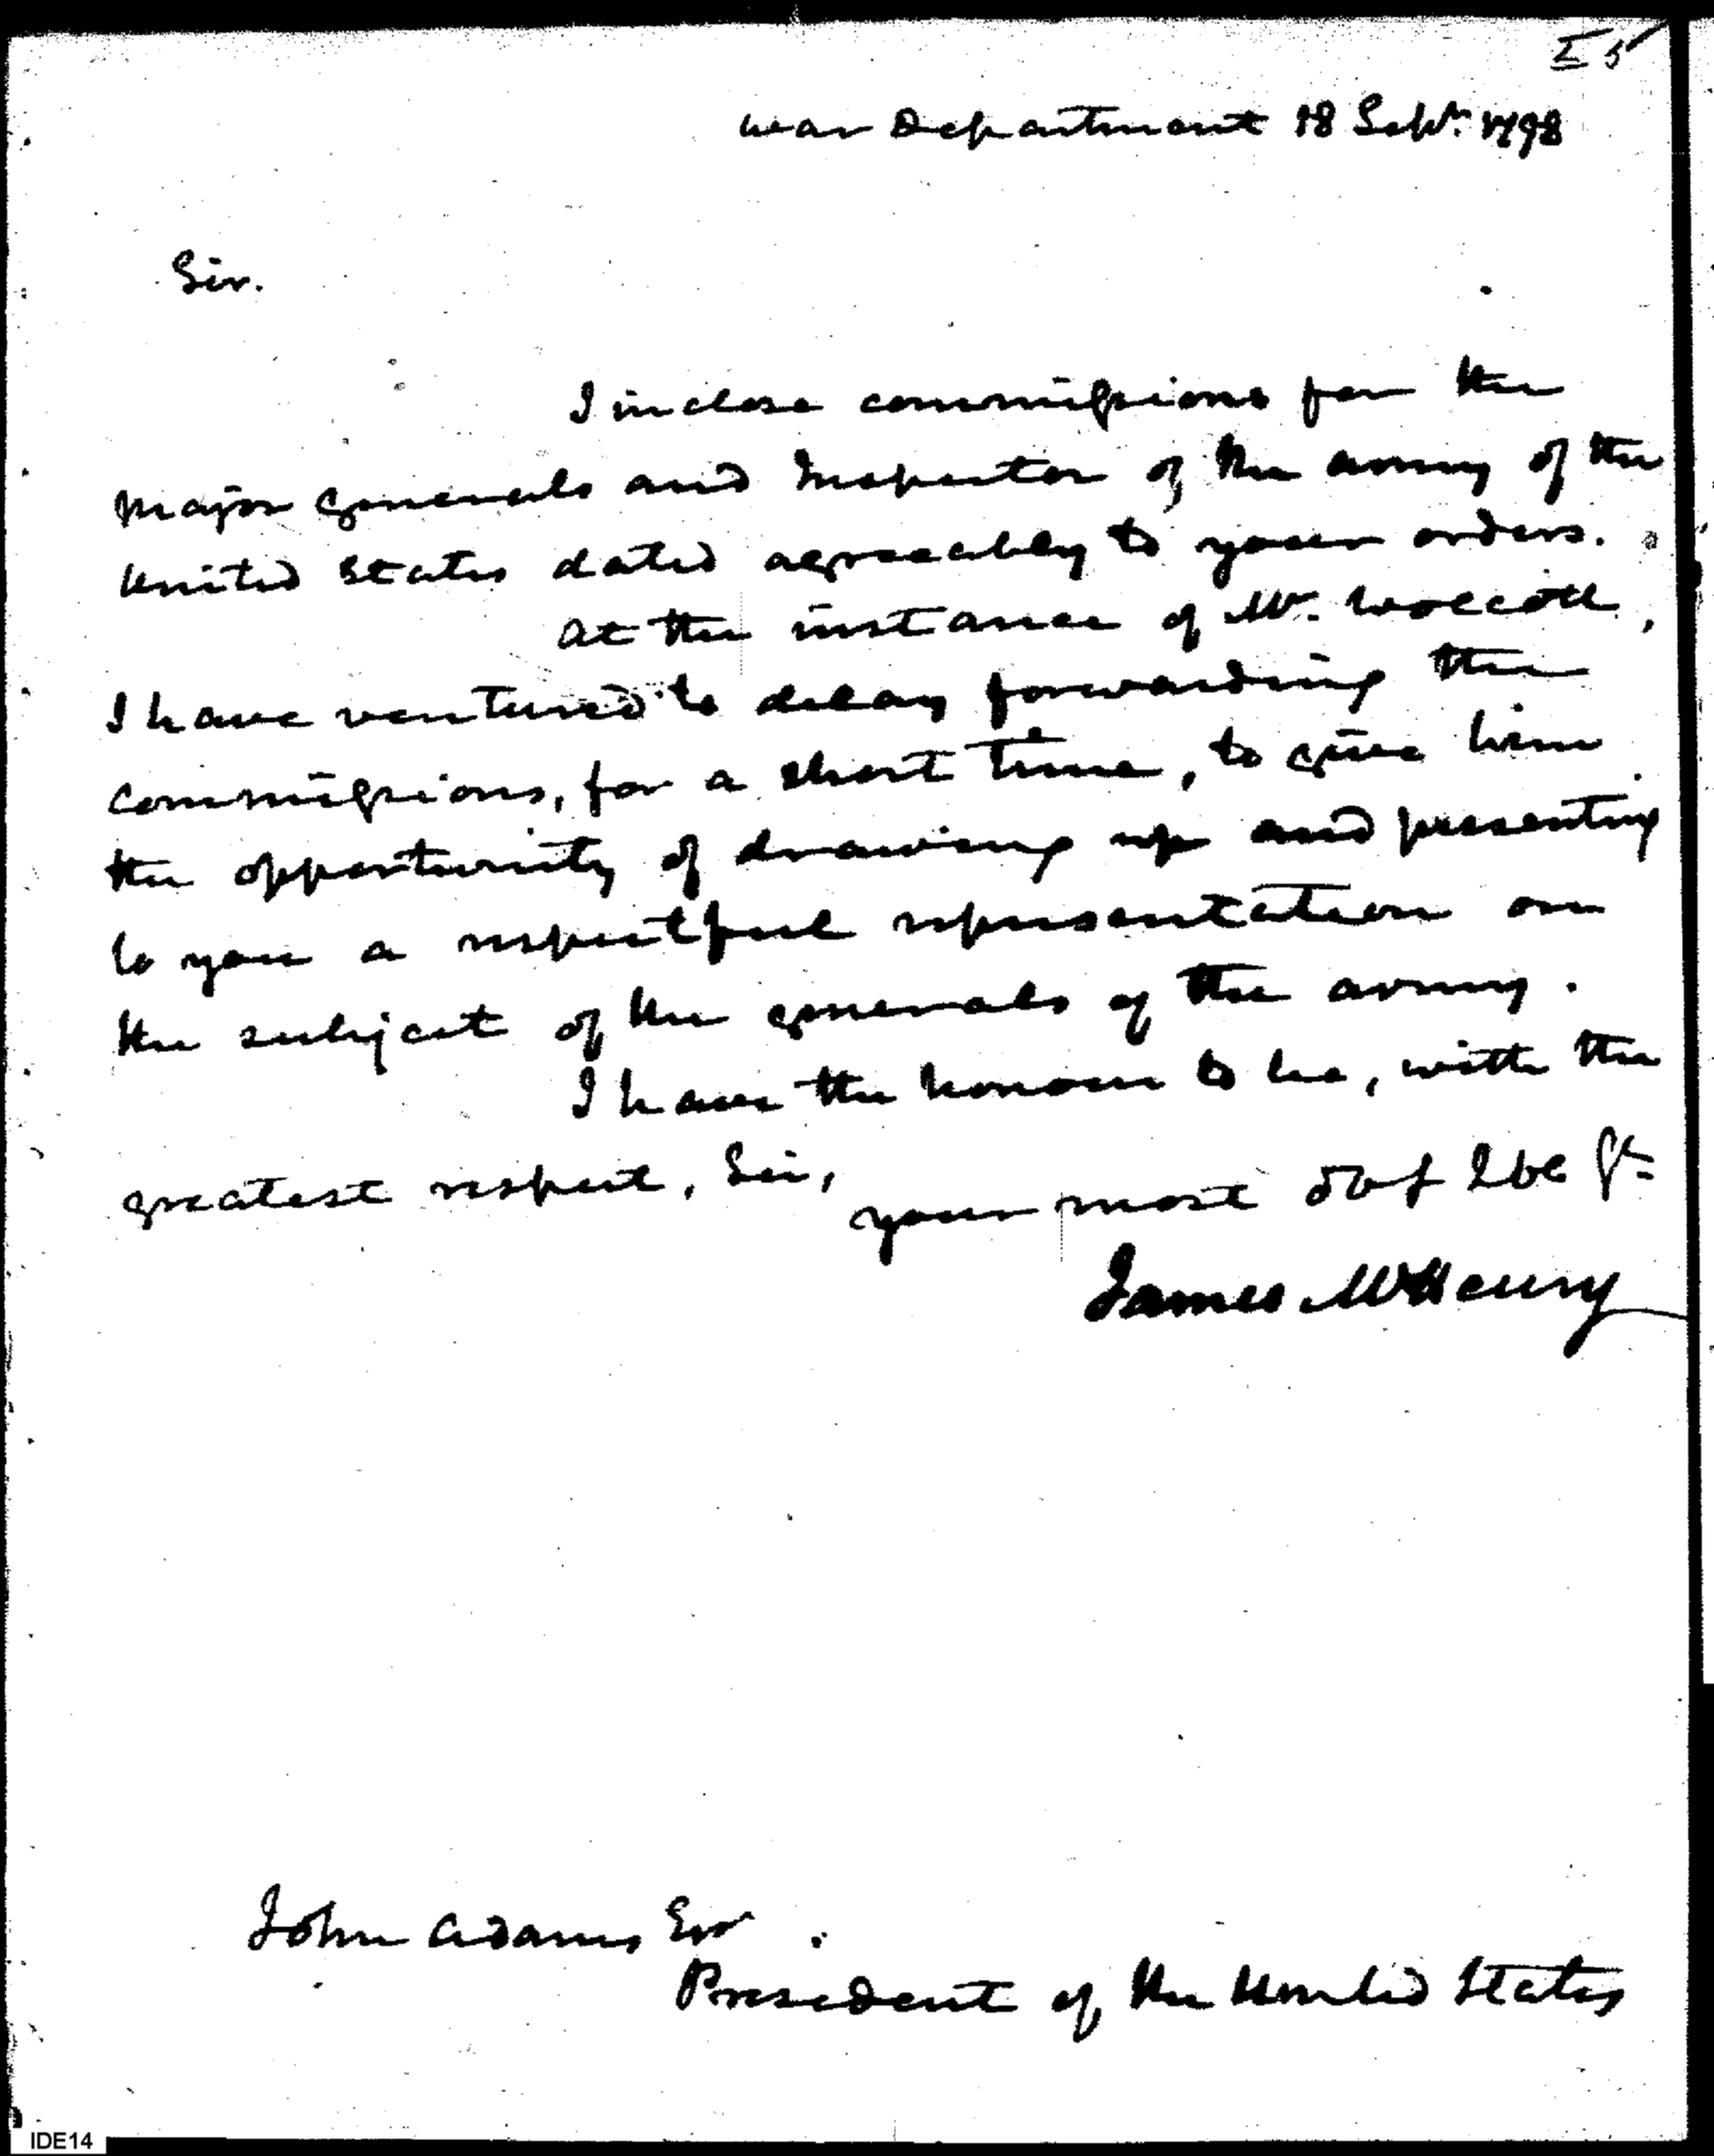 War Department 18 Sepr. 1798
Sir.
I inclose commissions for the
Major Generals and Inspector of the army of the
United States dated agreeably to your orders.
At the instance of Mr. Wolcott,
I have ventured to delay forwarding the
commissions, for a short time, to give him
the opportunity of drawing up and presenting
to you a respectful representation on
the subject of the generals of the army.
I have the honour to be, with the
greatest respect, Sir,
your most obt
James McHenry
John Adams Esqr
President of the United States
IDE14